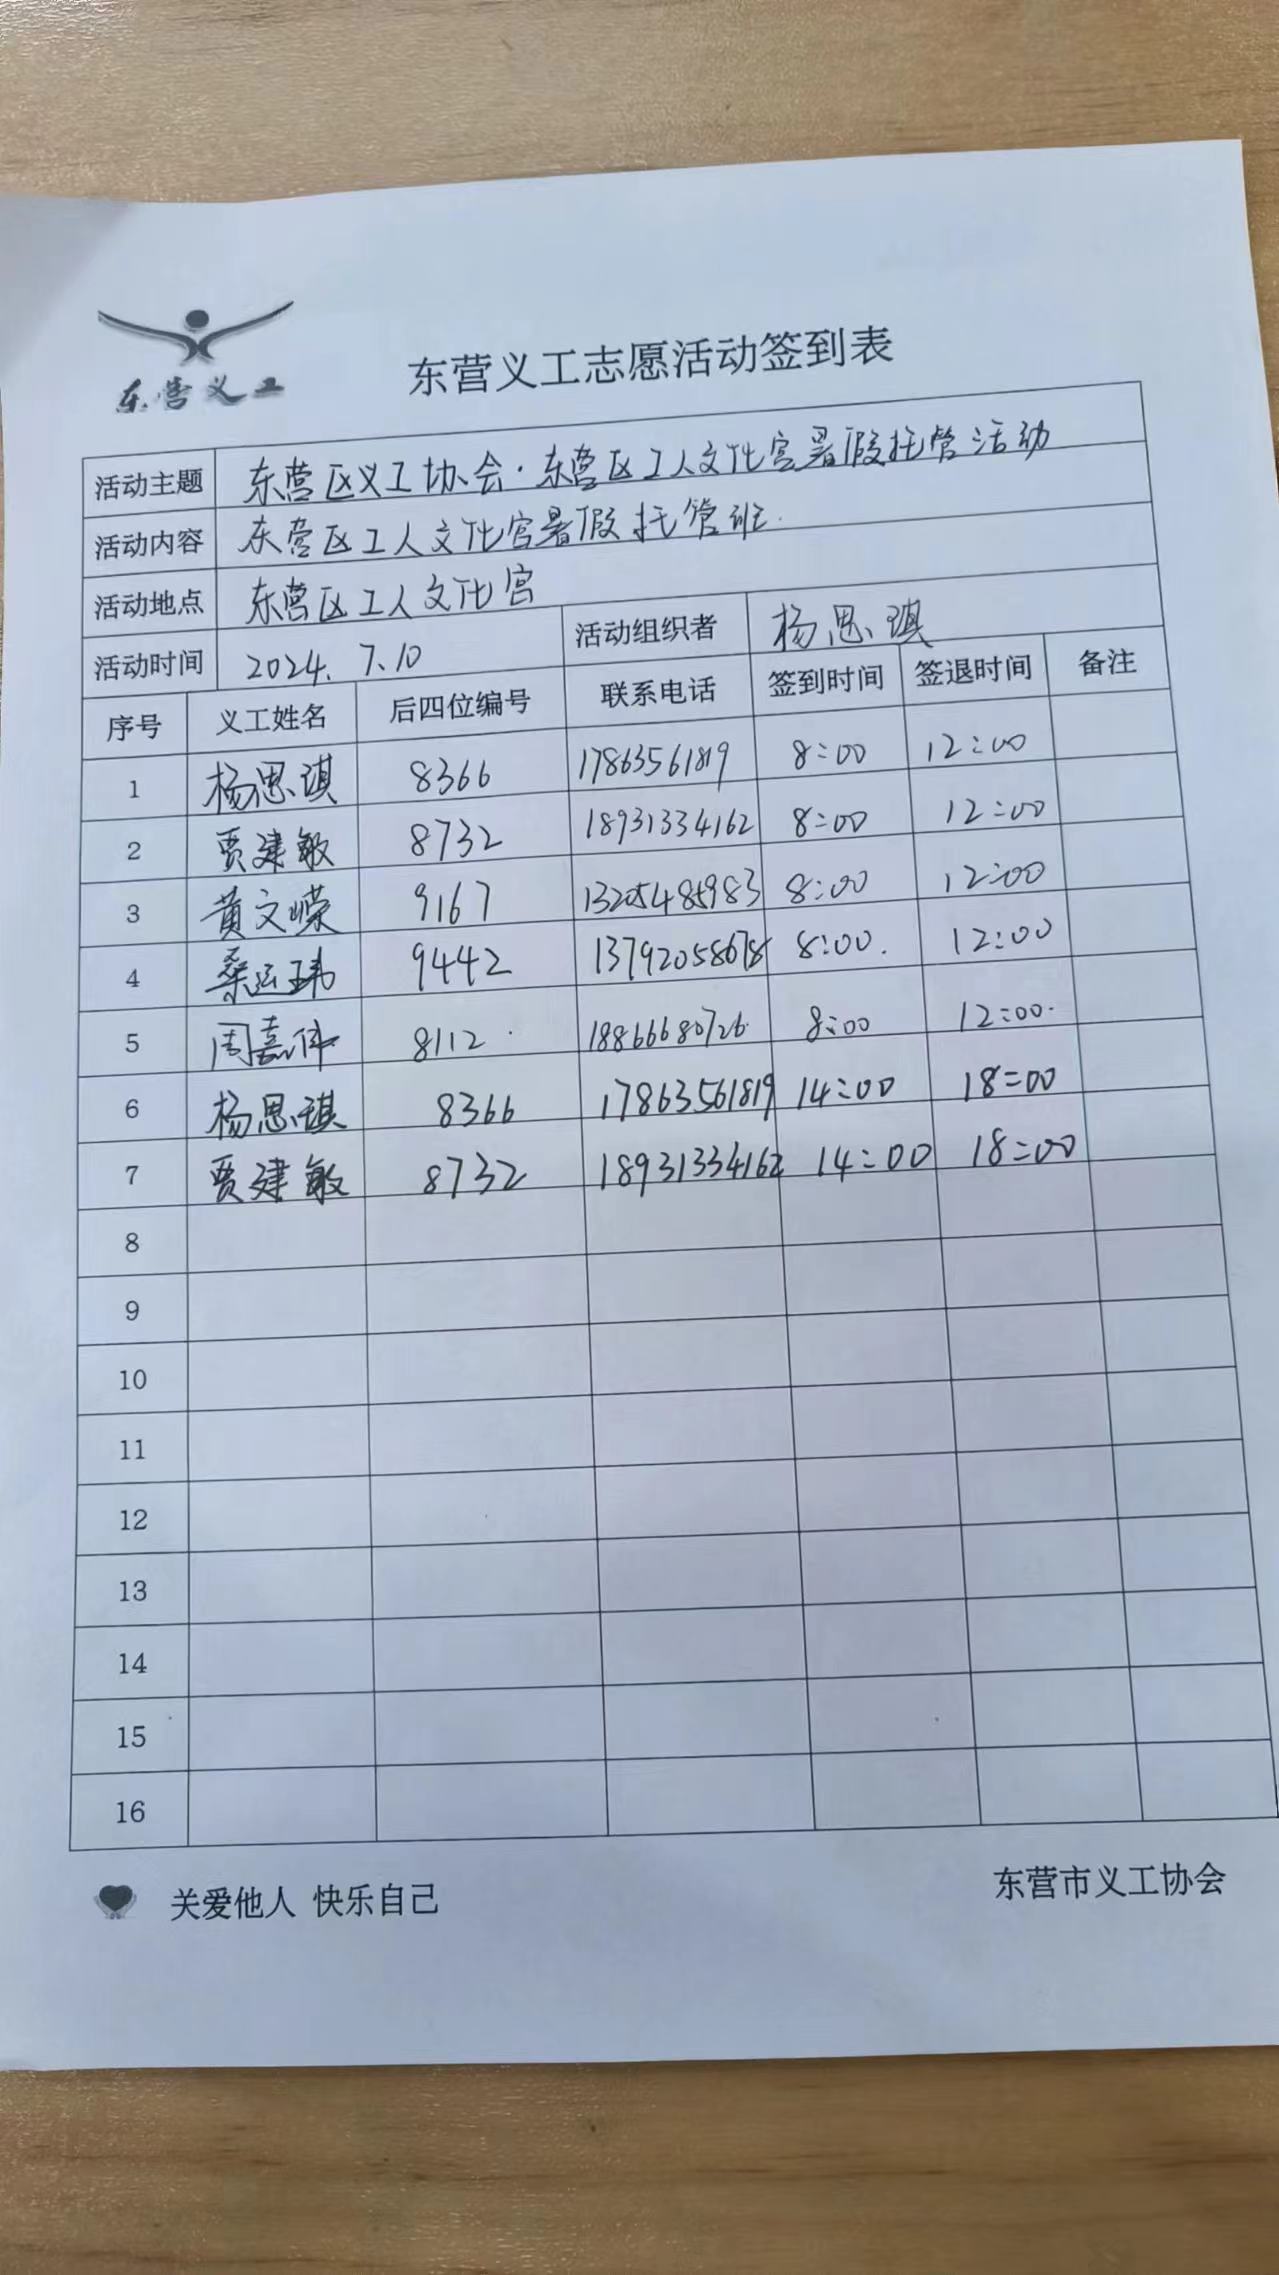 东营义工
东营义工志愿活动签到表
活动主题 东营区义工协会·东营区工人文化宫暑假托管活动
活动内容 东营区工人文化宫暑假托管班.
活动地点 东营区工人文化宫
活动时间 2024.7.10 活动组织者 杨思琪
序号 义工姓名 后四位编号 联系电话 签到时间 签退时间 备注
1 杨思琪 8366 17863561819 8:00 12:00
2 贾建敏 8732 18931334162 8:00 12:00
3 黄文嵘 9167 13205485983 8:00 12:00
4 桑 玮 9442 13792058678 8:00. 12:00
5 周嘉伟 8112. 18866680726. 8:00 12:00.
6 杨思琪 8366 17863561819 14:00 18:00
7 贾建敏 8732 18931334162 14:00 18:00
8
9
10
11
12
13
14
15
16
关爱他人 快乐自己 东营市义工协会